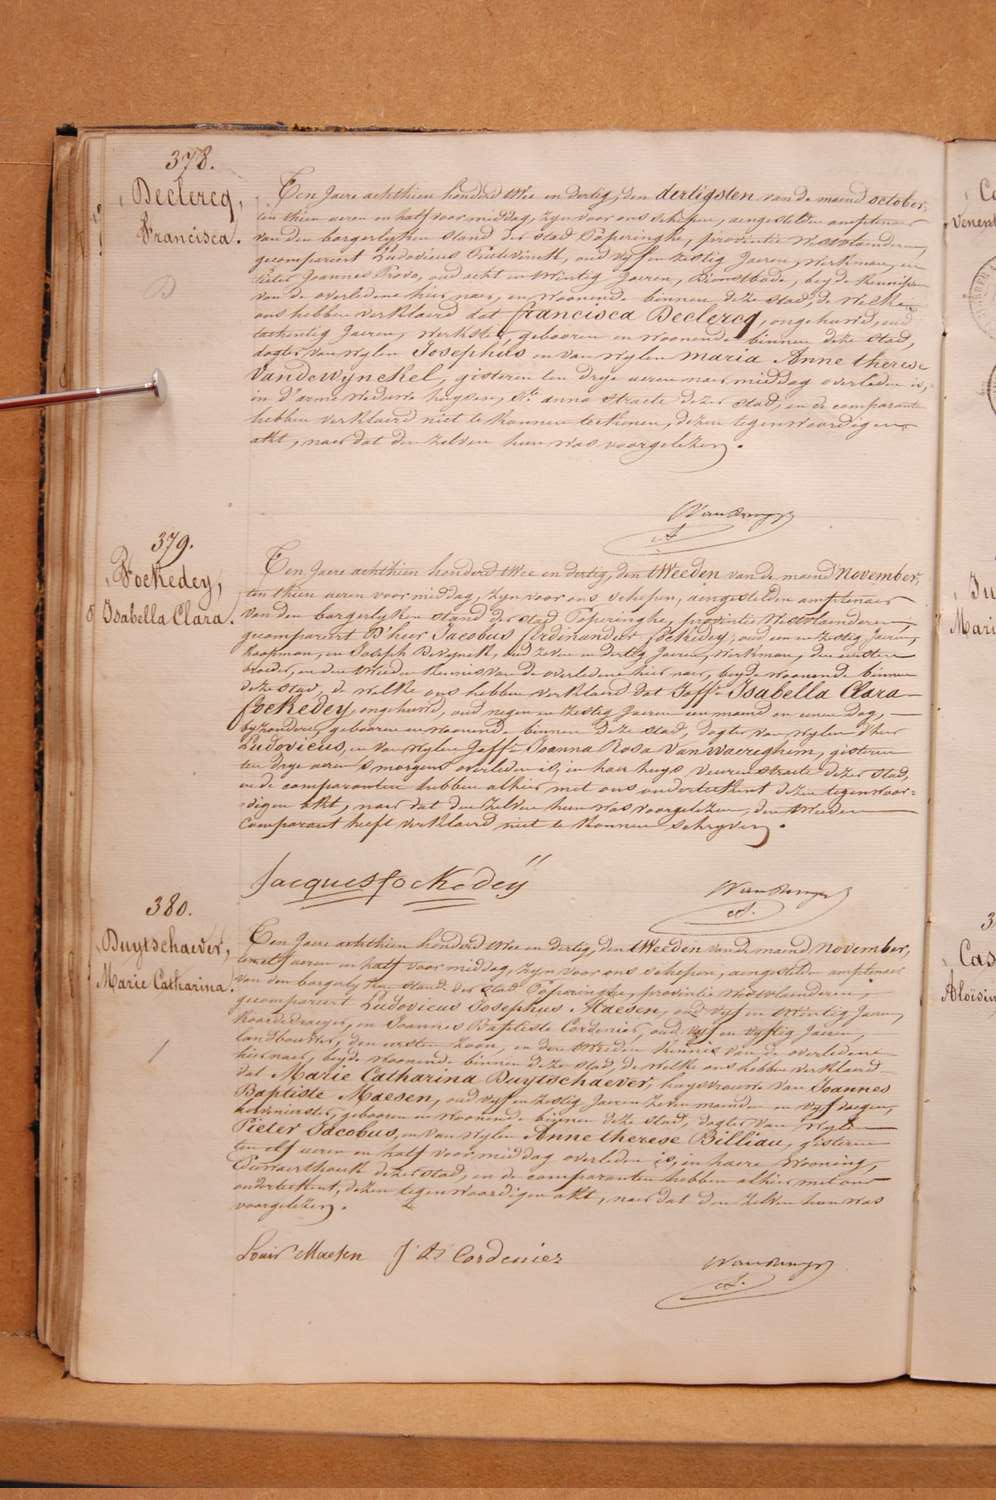 378.
Declercq,
Francisca.
Een Jaere achthien honderd twee en dertig, den dertigsten van de maend october,
ten thien ueren en half voormiddag, zyn voor ons schepen, aengestelden amptenaer
van den borgerlyken stand der stad Poperinghe, provintie Westvlaenderen,
gecompareert Ludovicus oud vyf en zestig Jaeren, werkman, en
Pieter Joannes oud acht en twintig Jaeren, Dienstbode, beyde kennissen
van de overledene hier naer, en woonende binnen deze stad, de welke
ons hebben verklaerd dat Francisca Declercq, ongehuwd, oud
tachentig Jaeren, werkster, gebooren en woonende binnen deze stad,
dogter van wylen Josephus en van wylen Maria Anne therese
Vandewynckel, gisteren ten drye ueren naer middag overleden is,
in d'arme weduwe huysen, Ste. anna straete dezer stad, en de comparanten
hebben verklaerd niet te konnen teekenen, dezen tegenwoordigen
akt, naer dat den zelven hun was voorgelezen.
379.
Fockedey,
Isabella Clara.
Een Jaere achthien honderd twee en dertig, den tweeden van de maend November,
ten thien ueren voormiddag, zyn voor ons schepen, aengestelden amptenaer
van den borgerlyken stand der stad Poperinghe, provintie Westvlaenderen,
gecompareert D'heer Jacobus Ferdinandus Fockedey, oud en zestig Jaeren,
koopman, en Joseph Devynck, oud zeven en dertig Jaeren, werkman, den eersten
broeder, en den tweeden kennis van de overledene hier naer, beyde woonende binnen
deze stad, de welke ons hebben verklaerd dat Joffe. Isabella Clara
Fockedey, ongehuwd, oud negen en zestig Jaeren een maend en eenen dag,
byzondere, gebooren en woonende binnen deze stad, dogter van wylen d'heer
Ludovicus, en van wylen Joffe. Joanna Rosa Van Waereghem, gisteren
ten drye ueren 's morgens overleden is, in haer huys veurne straete dezer stad,
en de comparanten hebben alhier met ons onderteekent dezen tegenwoor-
digen akt, naer dat den zelven hun was voorgelezen, den tweeden
comparant heeft verklaerd niet te konnen schryven.
Jacques Fockedey
380.
Duytschaever,
Marie Catharina.
Een Jaere achthien honderd twee en dertig, den tweeden van de maend November,
ten elf ueren en half voormiddag, zyn voor ons schepen, aengestelden amptenaer
van den borgerlyken stand der stad Poperinghe, provintie Westvlaenderen,
gecompareert Ludovicus Josephus Maesen, oud vyf en twintig Jaeren,
koordedraeyer, en Joannes Baptiste Cordenier, oud vyf en vyftig Jaeren,
landbouwer, den eersten zoon, en den tweeden kennis van de overledene
hier naer, beyde woonende binnen deze stad, de welke ons hebben verklaerd
dat Marie Catharina Duytschaever, huysvrouwe van Joannes
Baptiste Maesen, oud vyf en zestig Jaeren zeven maenden en vyf daegen,
gebooren en woonende binnen deze stad, dogter van wylen
Pieter Jacobus, en van wylen Anne therese Billiau, gisteren
ten elf ueren en half voormiddag overleden is, in haere wooning,
dezer stad, en de comparanten hebben alhier met ons
onderteekent, dezen tegenwoordigen akt, naer dat den zelven hun was
voorgelezen.
Louis Maesen J Bte Cordenier